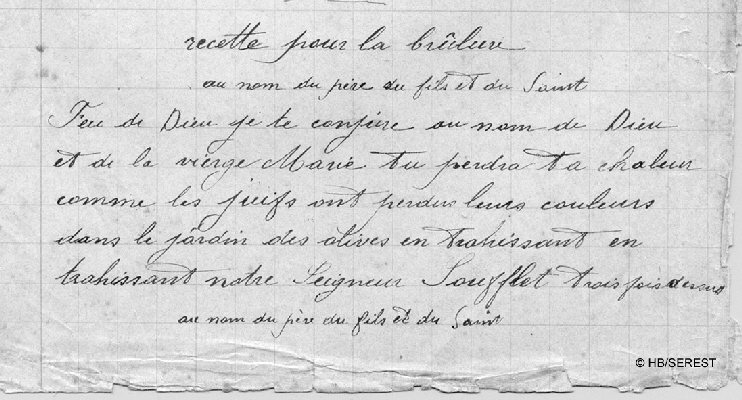 recette pour la brûlure
au nom du père du fils et du Saint
Feu de Dieu je te conjure au nom de Dieu
et de la vierge Marie tu perdra ta chaleur
comme les juifs ont perdus leurs couleurs
dans le jardin des olives en trahissant en
trahissant notre Seigneur Soufflet trois fois dessus
au nom du père du fils et du Saint
© HB/SEREST